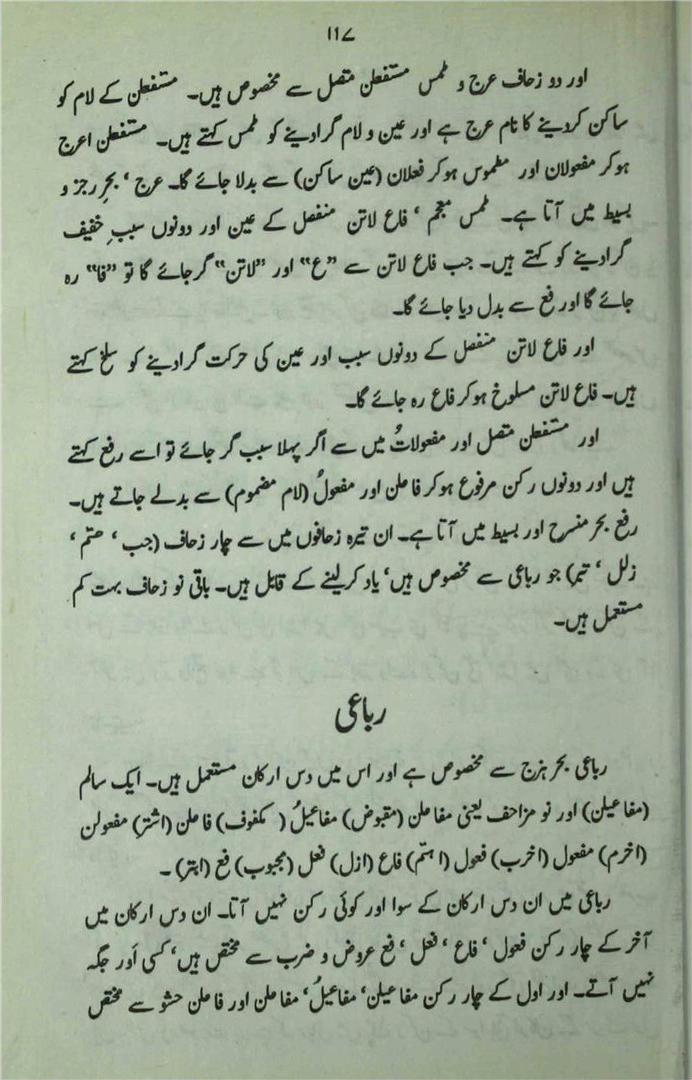 ۱۱۷
اور دو زحاف عرج و طمس مستفعلن متصل سے مخصوص ہیں۔ مستفعلن کے لام کو
ساکن کردینے کا نام عرج ہے اور عین و لام گرادینے کو طمس کہتے ہیں۔ مستفعلن اعرج
ہوکر مفعولان اور مطموس ہوکر فعلان (عین ساکن) سے بدلا جائے گا۔ عرج ‘ بحرِ رجز و
بسیط میں آتا ہے۔ طمس معجم ‘ فاع لاتن منفصل کے عین اور دونوں سببِ خفیف
گرادینے کو کہتے ہیں۔ جب فاع لاتن سے “ع” اور “لاتن” گرجائے گا تو “فا” رہ
جائے گا اور فع سے بدل دیا جائے گا۔
اور فاع لاتن منفصل کے دونوں سبب اور عین کی حرکت گرادینے کو سلخ کہتے
ہیں۔ فاع لاتن مسلوخ ہوکر فاع رہ جائے گا۔
اور مستفعلن متصل اور مفعولاتُ میں سے اگر پہلا سبب گر جائے تو اسے رفع کہتے
ہیں اور دونوں رکن مرفوع ہوکر فاعلن اور مفعولُ (لام مضموم) سے بدلے جاتے ہیں۔
رفع بحر منسرح اور بسیط میں آتا ہے۔ ان تیرہ زحافوں میں سے چار زحاف (جب ‘ ہتم ‘
زلل ‘ تبر) جو رباعی سے مخصوص ہیں‘ یاد کرلینے کے قابل ہیں۔ باقی نو زحاف بہت کم
مستعمل ہیں۔
رباعی
رباعی بحر ہزج سے مخصوص ہے اور اس میں دس ارکان مستعمل ہیں۔ ایک سالم
(مفاعیلن) اور نو مزاحف یعنی مفاعلن (مقبوض) مفاعیلُ (مکفوف) فاعلن (اشتر) مفعولن
(اخرم) مفعول (اخرب) فعول (اہتم) فاع (ازل) فعل (مجبوب) فع (ابتر)۔
رباعی میں ان دس ارکان کے سوا اور کوئی رکن نہیں آتا۔ ان دس ارکان میں
آخر کے چار رکن فعول ‘ فاع ‘ فعل ‘ فع عروض و ضرب سے مختص ہیں‘ کسی اَور جگہ
نہیں آتے۔ اور اول کے چار رکن مفاعیلن‘ مفاعیلُ‘ مفاعلن اور فاعلن حشو سے مختص